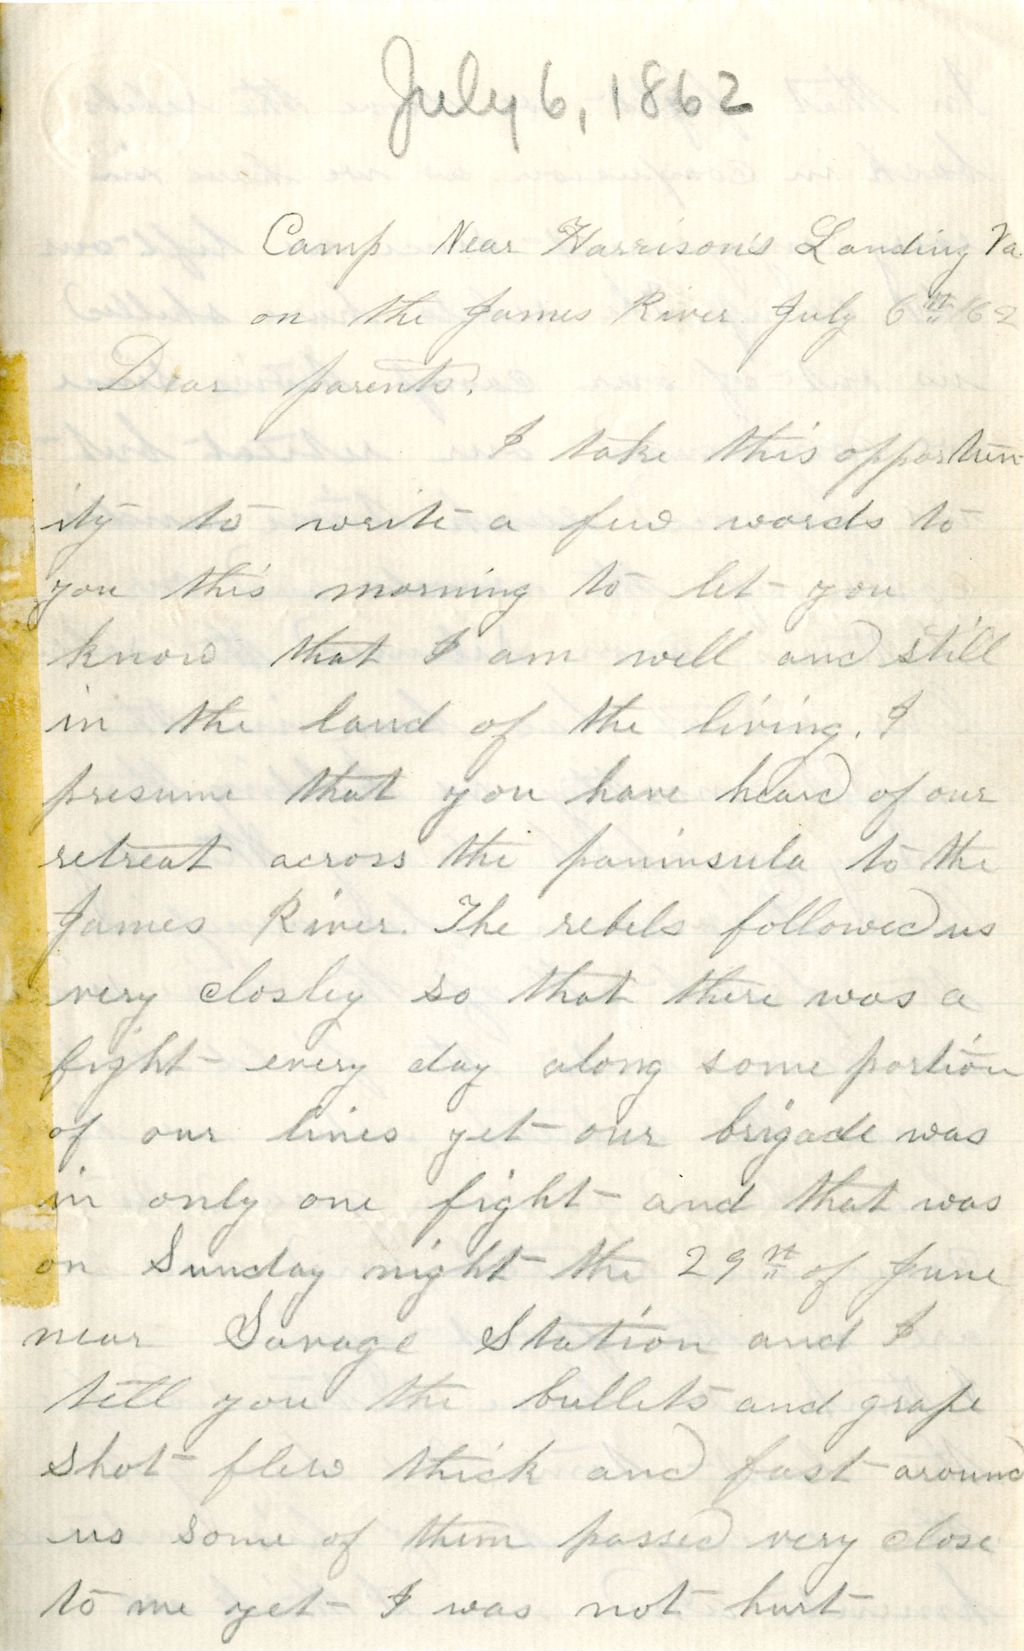 July 6, 1862
Camp Near Harrison's Landing Va.
on the James River July 6th /62
Dear parents.
I take this opportun
ity to write a few words to
you this morning to let you
know that I am well and still
in the land of the living. I
presume that you have heard of our
retreat across the paninsula to the
James River. The rebels followed us
very closley so that there was a
fight every day along some portion
of our lines yet our brigade was
in only one fight and that was
on Sunday night the 29th of June
near Savage Station and I
tell you the bullets and grape
shot flew thick and fast around
us some of them passed very close
to me yet I was not hurt